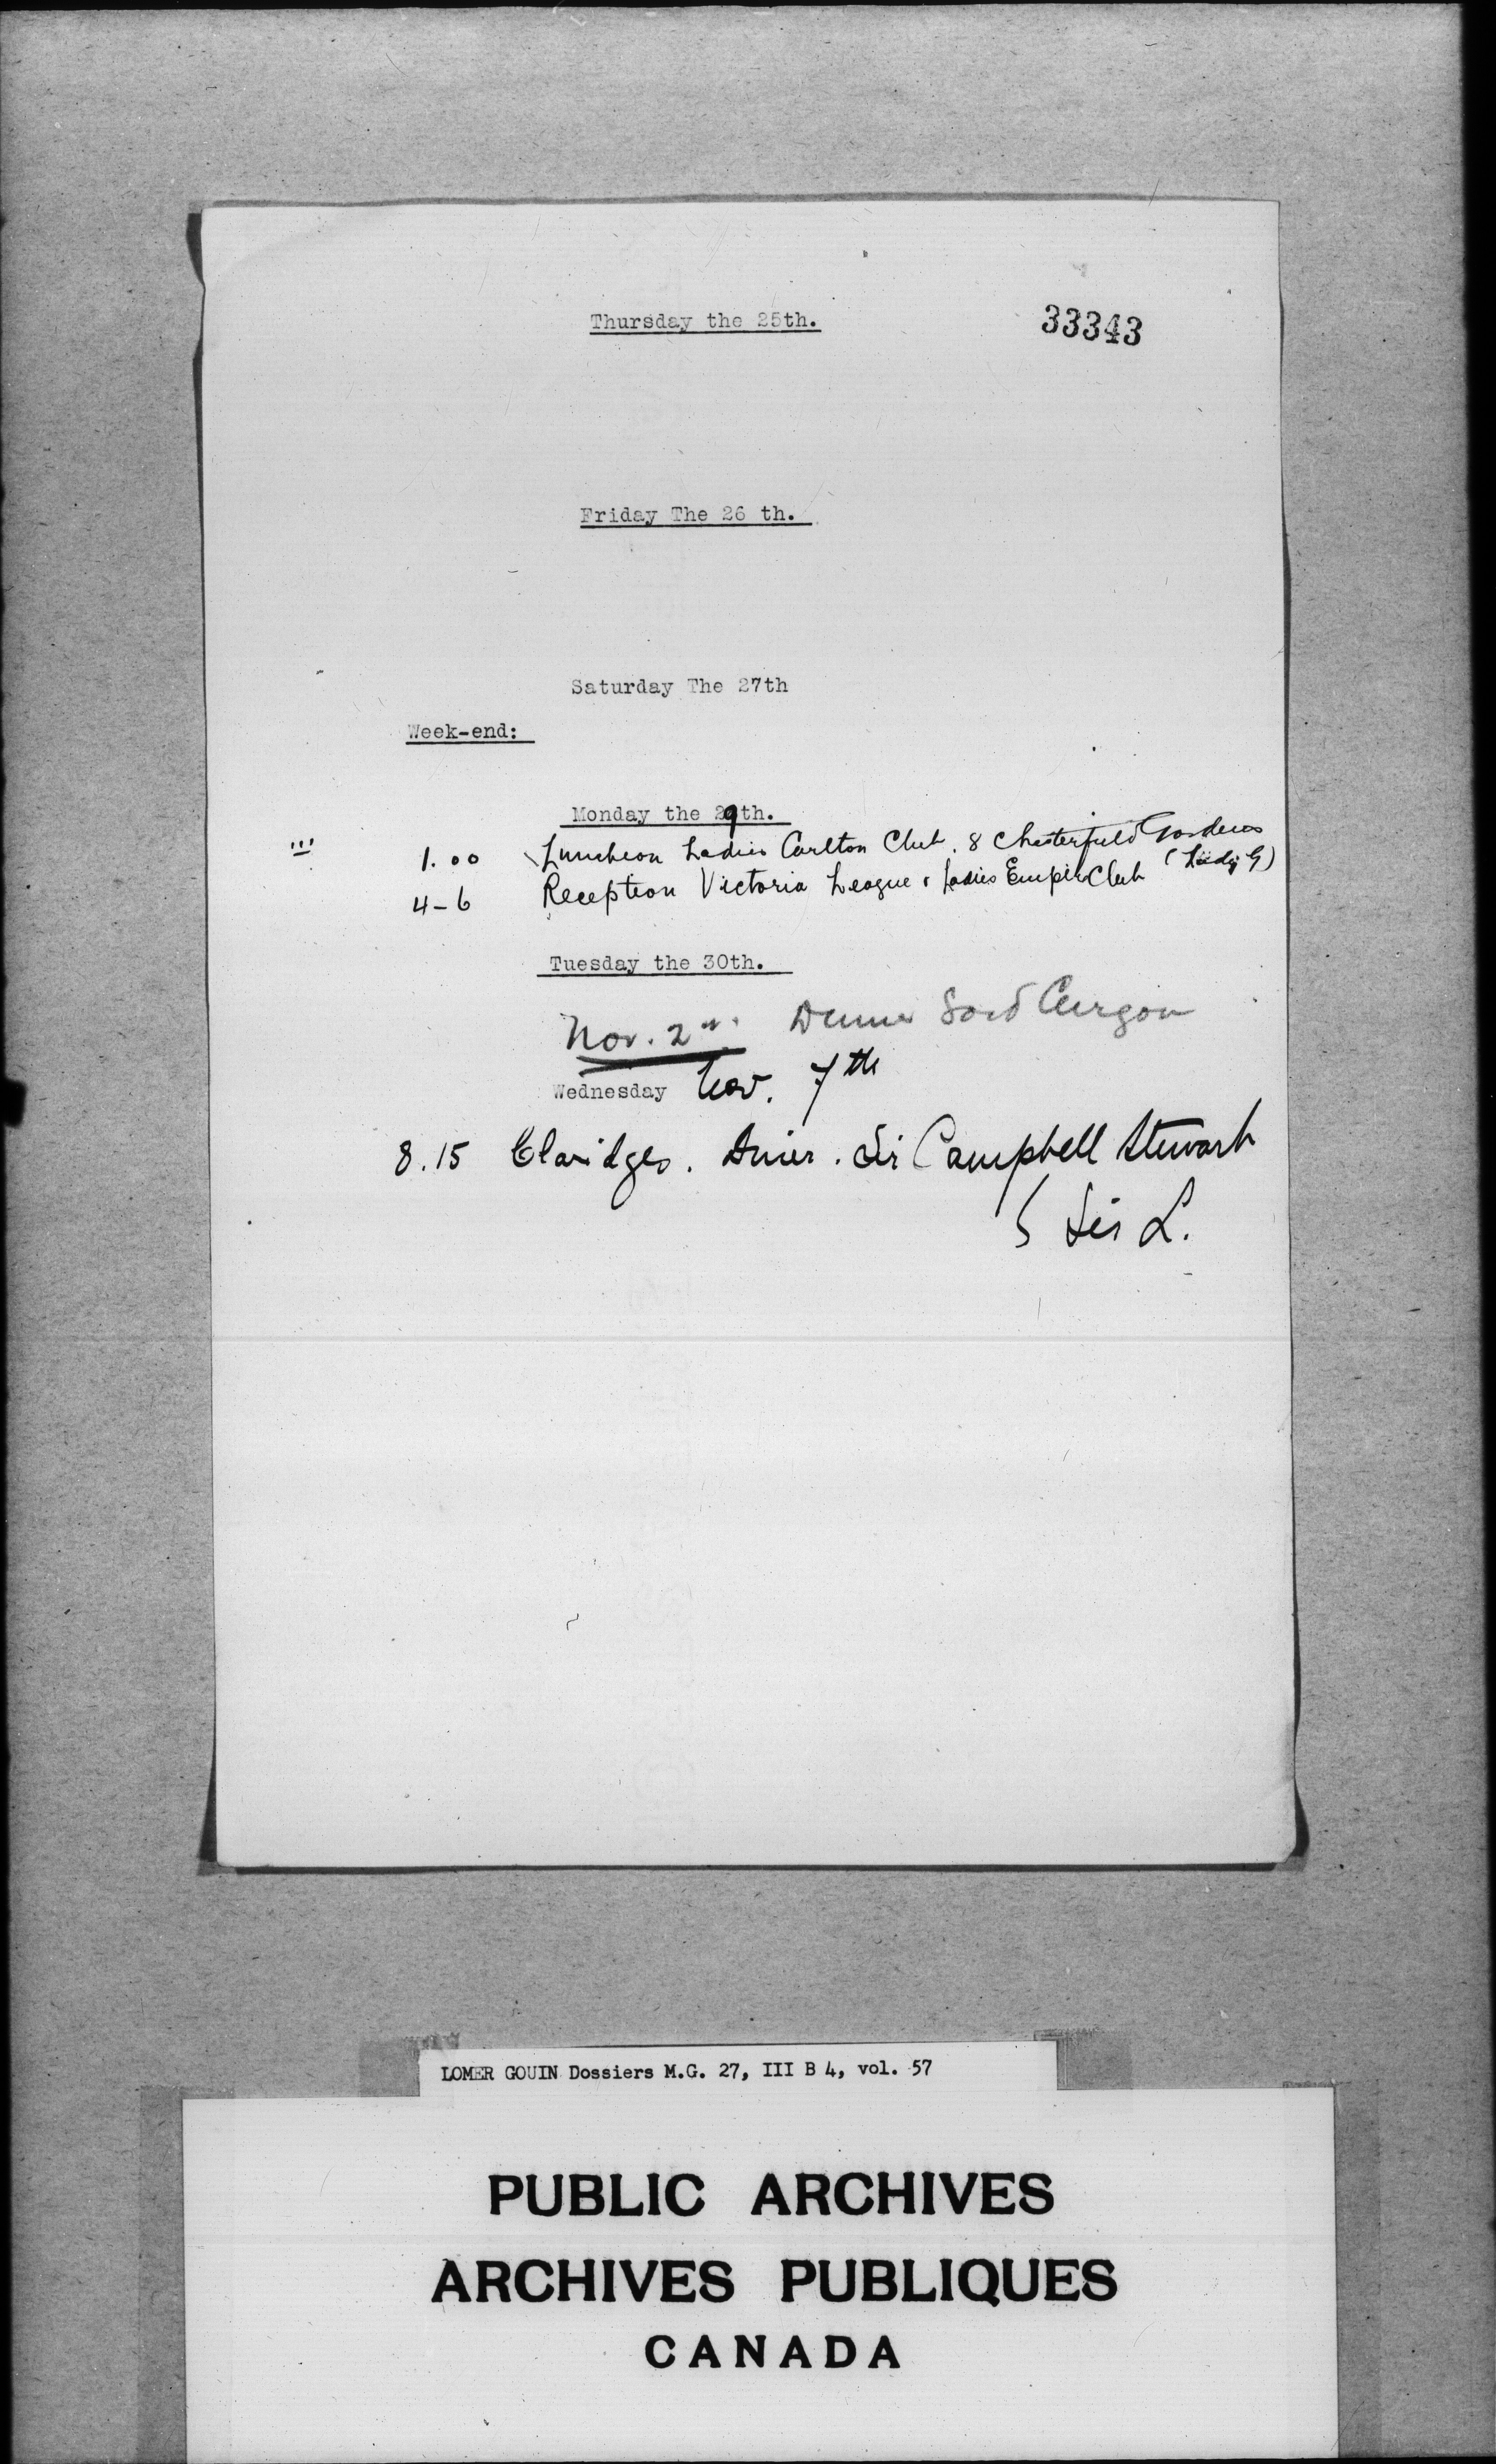 33343
Thursday the 25th.
Friday The 26 th.
Saturday The 27th
Week-end:
Monday the 29th.
1.00 Luncheon Ladies Carlton Club. 8 Chesterfield Gardens
4-6 Reception Victoria League & Ladies Empire Club (Lady G)
Tuesday the 30th.
Nov. 2nd. Dinner Lord Curzon
Wednesday Nov. 7th
8.15 Claridges. Diner. Sir Campbell Stewart
Sir L.
LOMER GOUIN Dossiers M.G. 27, III B 4, vol. 57
PUBLIC ARCHIVES
ARCHIVES PUBLIQUES
CANADA